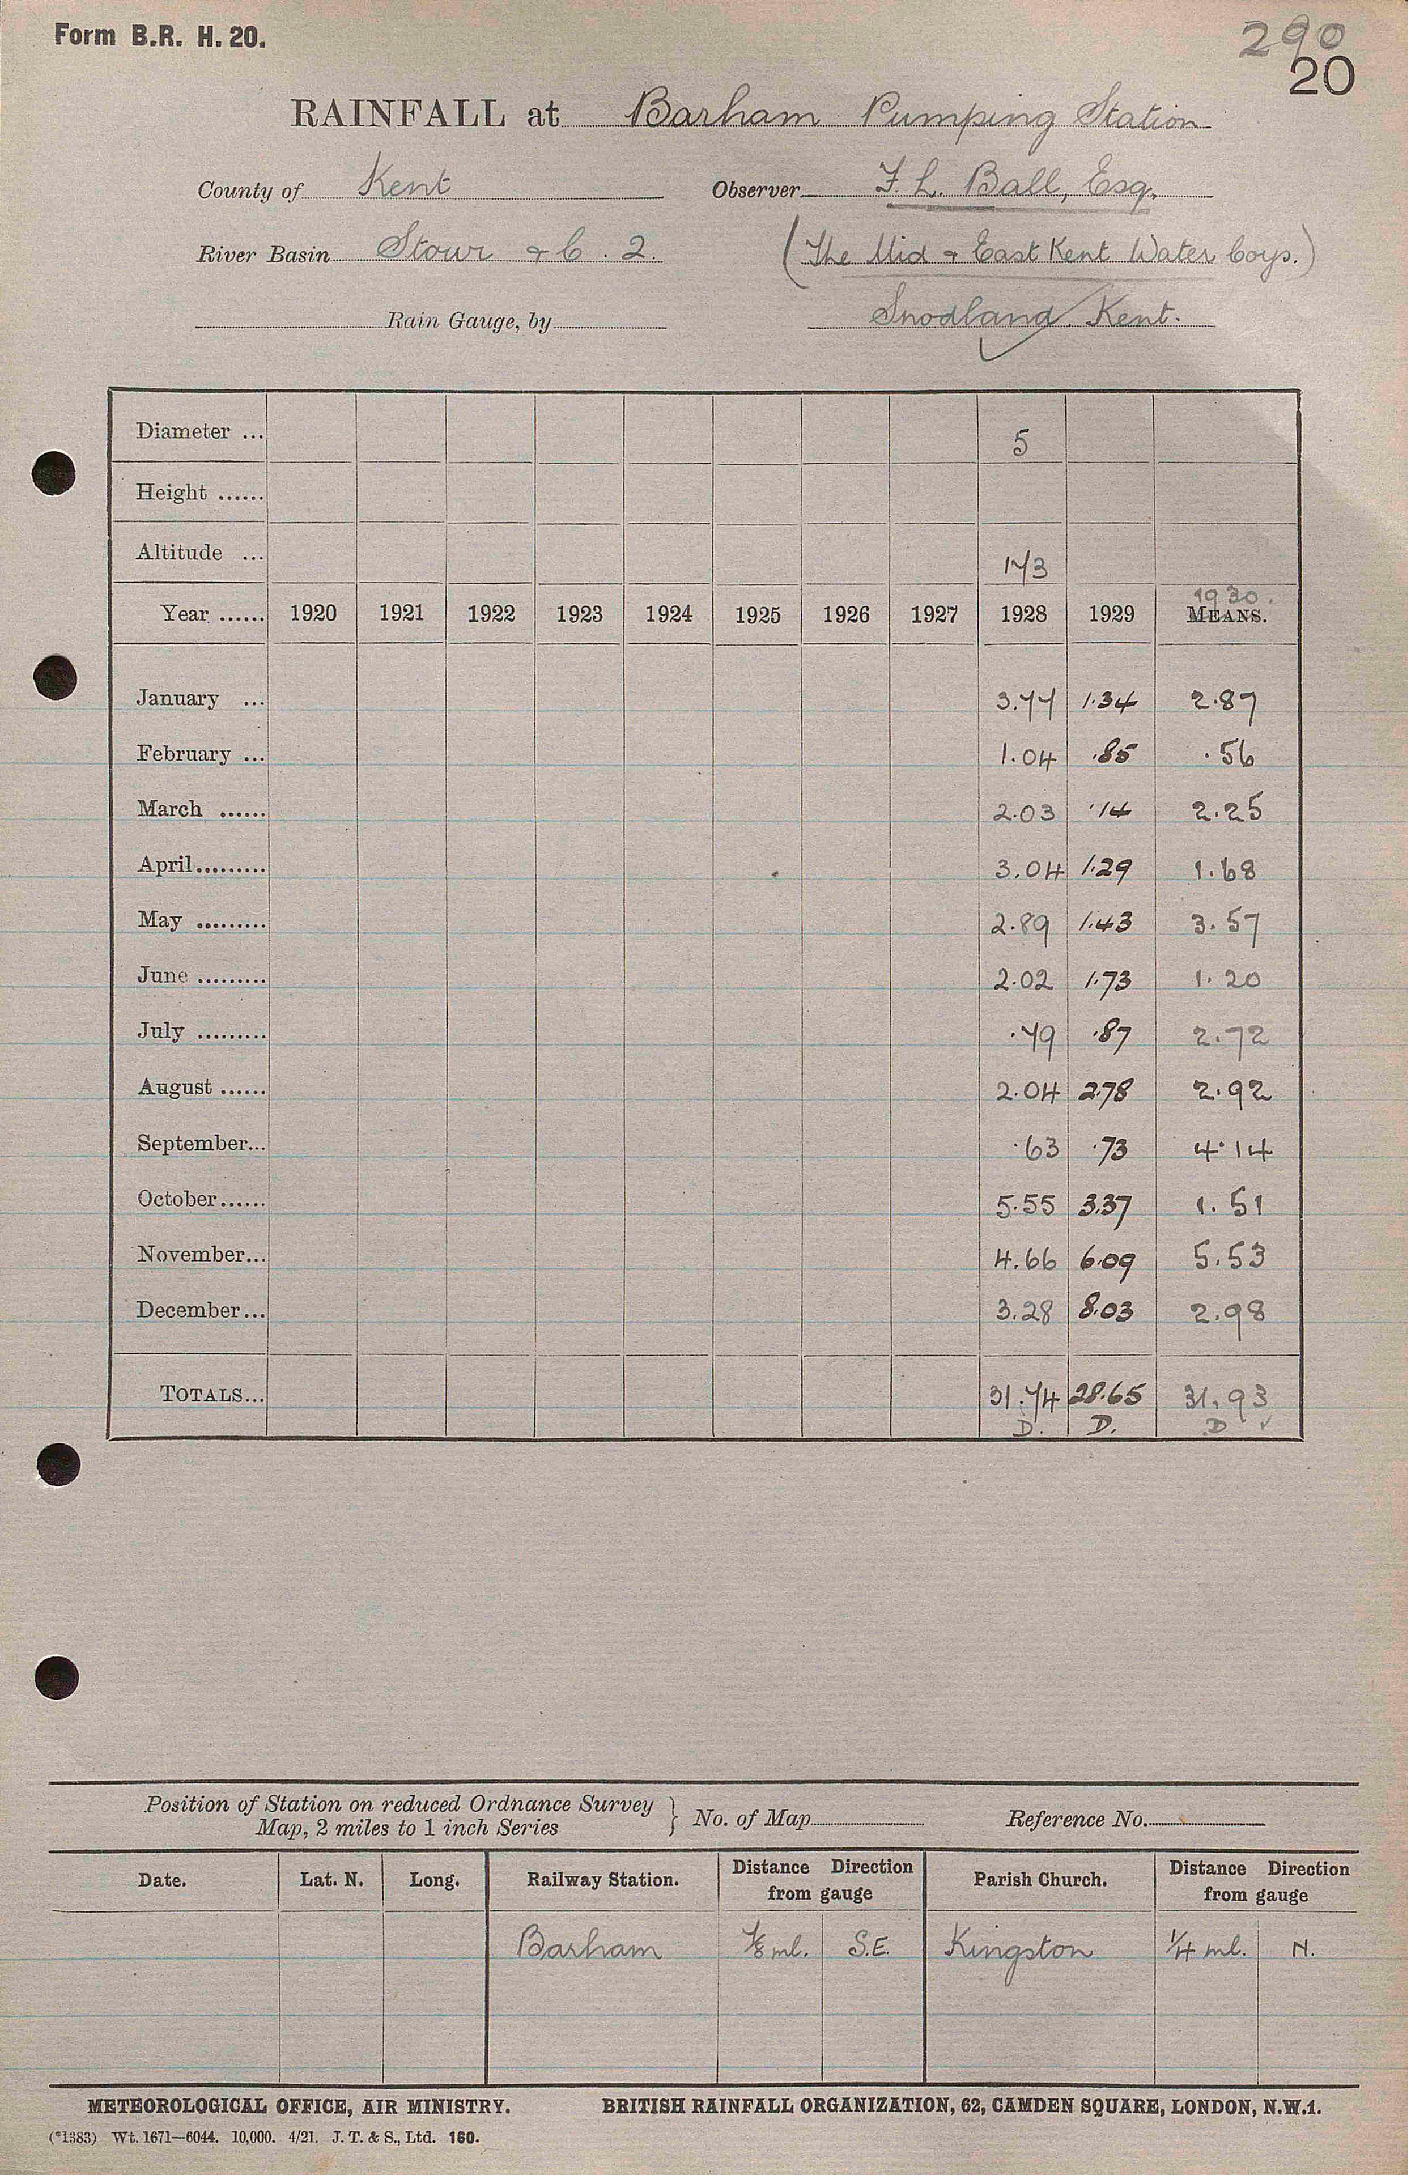 Form B.R. H. 20.
290
20
RAINFALL at Barham Pumping Station
County of Kent Observer F. L. Ball, Esq.
River Basin Stour & C. 2. (The Mid & East Kent Water Coys.)
Rain Gauge, by Snodland Kent.
Diameter ... 5
Height ......
Altitude ... 173
1930.
Year ...... 1920 1921 1922 1923 1924 1925 1926 1927 1928 1929 MEANS.
January ... 3.77 1.34 2.87
February ... 1.04 .85 .56
March ...... 2.03 .14 2.25
April......... 3.04 1.29 1.68
May ......... 2.89 1.43 3.57
June ......... 2.02 1.73 1.20
July ......... .79 .87 2.72
August ...... 2.04 2.78 2.92
September... .63 .73 4.14
October...... 5.55 3.37 1.51
November... 4.66 6.09 5.53
December... 3.28 8.03 2.98
TOTALS... 31.74 28.65 31.93
D. D. D ✓
Position of Station on reduced Ordnance Survey
Map, 2 miles to 1 inch Series } No. of Map Reference No.
Date. Lat. N. Long. Railway Station. Distance Direction from gauge Parish Church. Distance Direction from gauge
Barham 1/8 ml. S.E. Kingston 1/4 ml. N.
METEOROLOGICAL OFFICE, AIR MINISTRY. BRITISH RAINFALL ORGANIZATION, 62, CAMDEN SQUARE, LONDON, N.W.1.
(*1383) Wt. 1671—6044. 10,000. 4/21. J. T. & S., Ltd. 160.